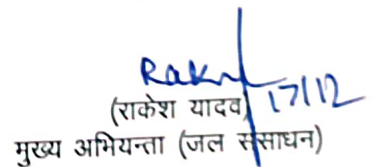 17/12
(राकेश यादव)
मुख्य अभियन्ता (जल संसाधन)